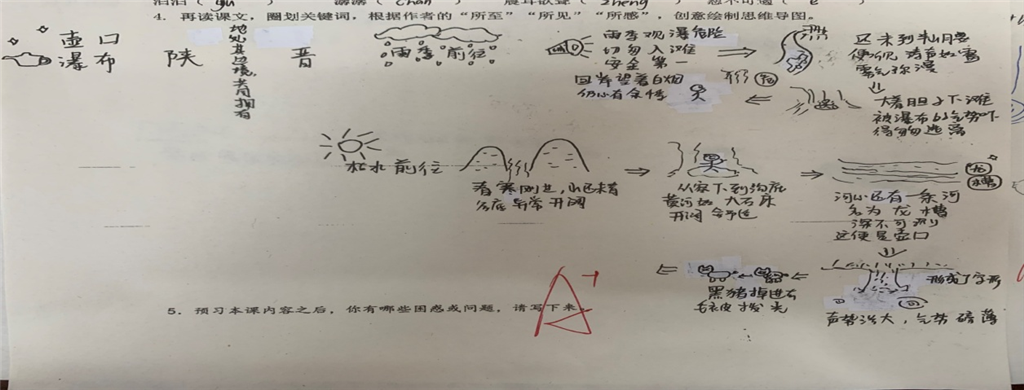 汩汩（gǔ） 潺潺（chán） 震耳欲聋（zhèng） 怒不可遏（è）
4. 再读课文，圈划关键词，根据作者的“所至”“所见”“所感”，创意绘制思维导图。
壶口
瀑布
陕
地处其边境，共同拥有
晋
雨季前往
雨季观瀑危险
切勿入滩
安全第一
还未到半山腰
便听涛声如雷
雾气弥漫
大着胆子下滩
被瀑布的气势吓
得匆匆逃离
回岸望着白烟
仍心有余悸
枯水前往
春寒刚过，山还未青
谷底异常开阔
从家下到沟底
黄河如 大石床
开阔
河心还有一条河
名为龙槽
深不可测
这便是壶口
形成了
声势浩大，气势磅礴
黑猪掉进去
毛衣被拨光
5. 预习本课内容之后，你有哪些困惑或问题，请写下来
A+